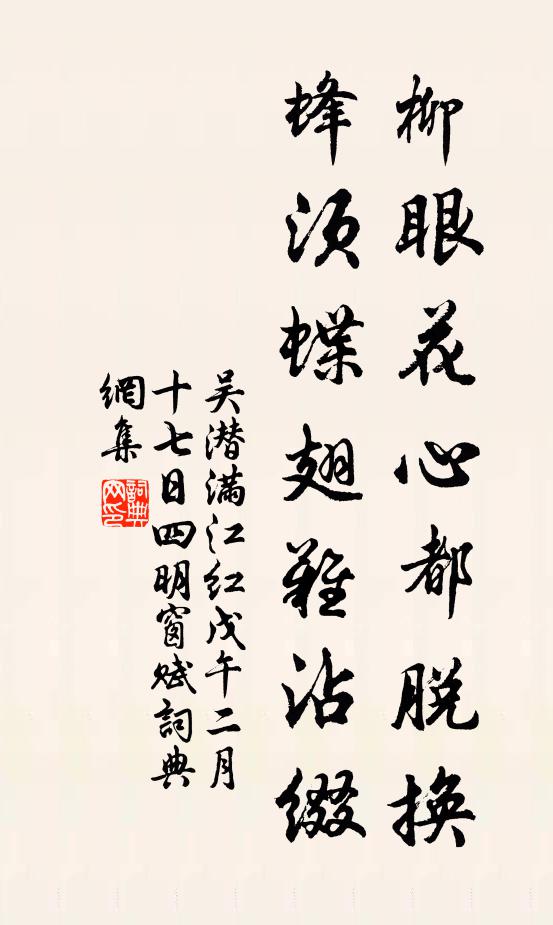 柳眼花心都脱换
蜂须蝶翅难沾缀
吴潜满江红戊午二月
十七日四明窗赋詞典
網集
詞典
网印